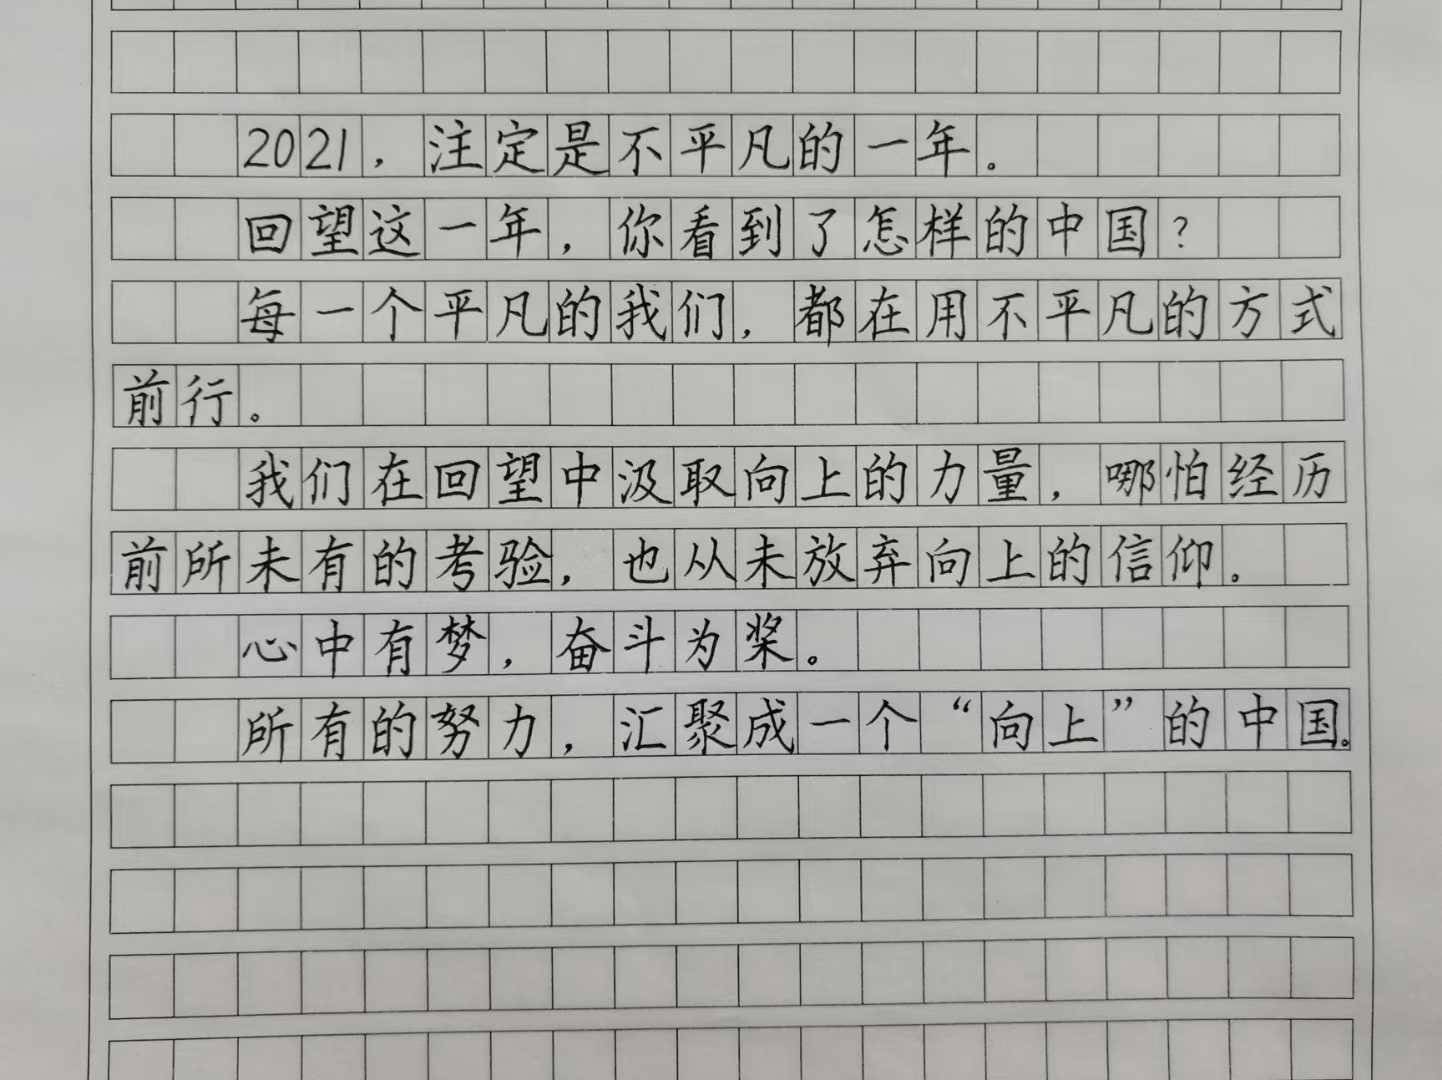 2021，注定是不平凡的一年。
回望这一年，你看到了怎样的中国？
每一个平凡的我们，都在用不平凡的方式
前行。
我们在回望中汲取向上的力量，哪怕经历
前所未有的考验，也从未放弃向上的信仰。
心中有梦，奋斗为桨。
所有的努力，汇聚成一个“向上”的中国。